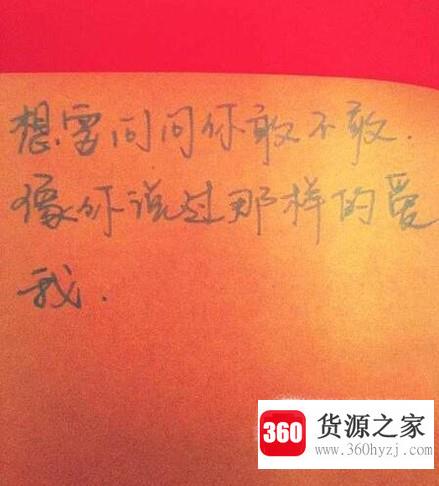 想要问问你敢不敢.
像你说过那样的爱
我.
360
货源之家
www.360hyzj.com